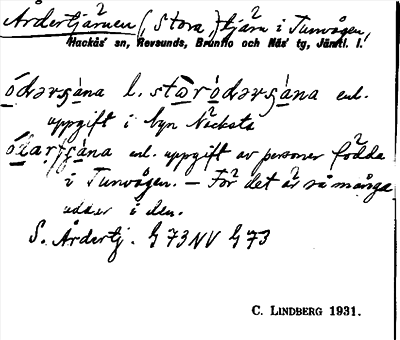 Årdertjärnen (, Stora) tjärn i Tunvågen,
Hackås sn, Revsunds, Brunflo och Näs tg, Jämtl. l.
ódərʂána l. staródərʂána enl.
uppgift i byn Näcksta
ólarʂána enl. uppgift av personer födda
i Tunvågen. – För det är så många
uddar i den.
S. Årdertj. G 73 NV G 73
C. LINDBERG 1931.